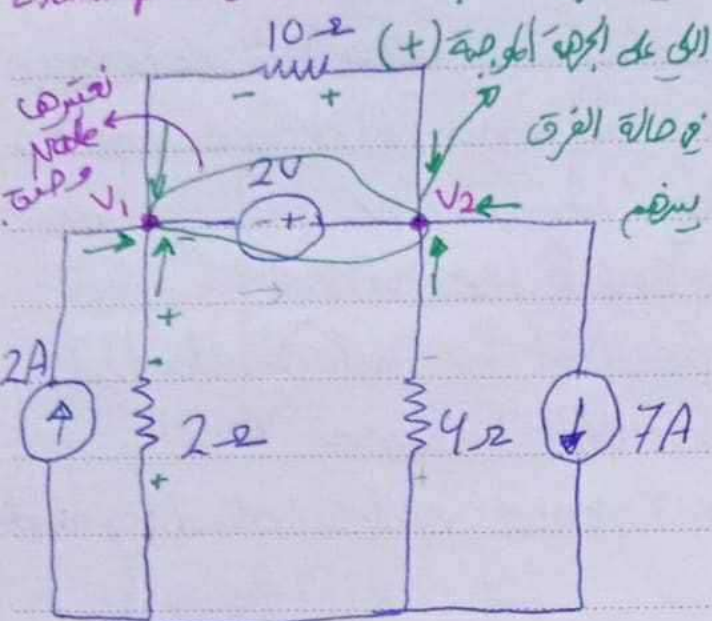 10Ω
(+) الي على الجهة الموجبة
في حالة الفرق
بينهم
نعتبرها
Node
وحدة
- +
2V
V1
V2
- +
-
+
-
2A
2Ω
+
-
4Ω
+
7A